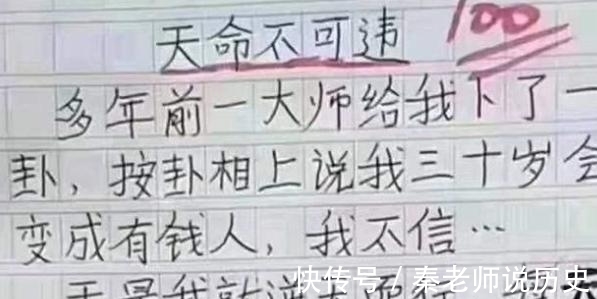 天命不可违 100
多年前一大师给我下了一
卦，按卦相上说我三十岁会
变成有钱人，我不信…
于是我就逆天而行
快传号 / 秦老师说历史